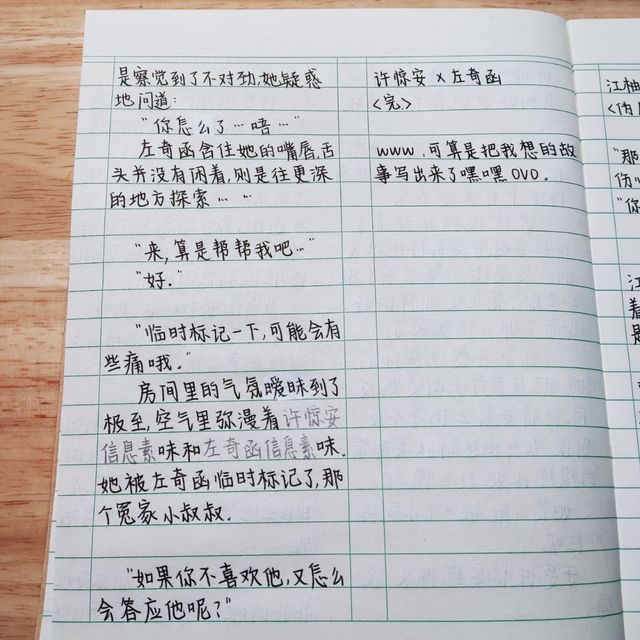 是察觉到了不对劲,她疑惑
地问道:
“你怎么了…唔…”
左奇函含住她的嘴唇,舌
头并没有闲着,则是往更深
的地方探索……
“来,算是帮帮我吧…”
“好.”
“临时标记一下,可能会有
些痛哦.”
房间里的气氛暧昧到了
极至,空气里弥漫着许惊安
信息素味和左奇函信息素味.
她被左奇函临时标记了,那
个冤家小叔叔.
“如果你不喜欢他,又怎么
会答应他呢?”
许惊安 x 左奇函
<完>
www.可算是把我想的故
事写出来了嘿嘿OVO.
江柚
“那
伤心
“你
江
着
是